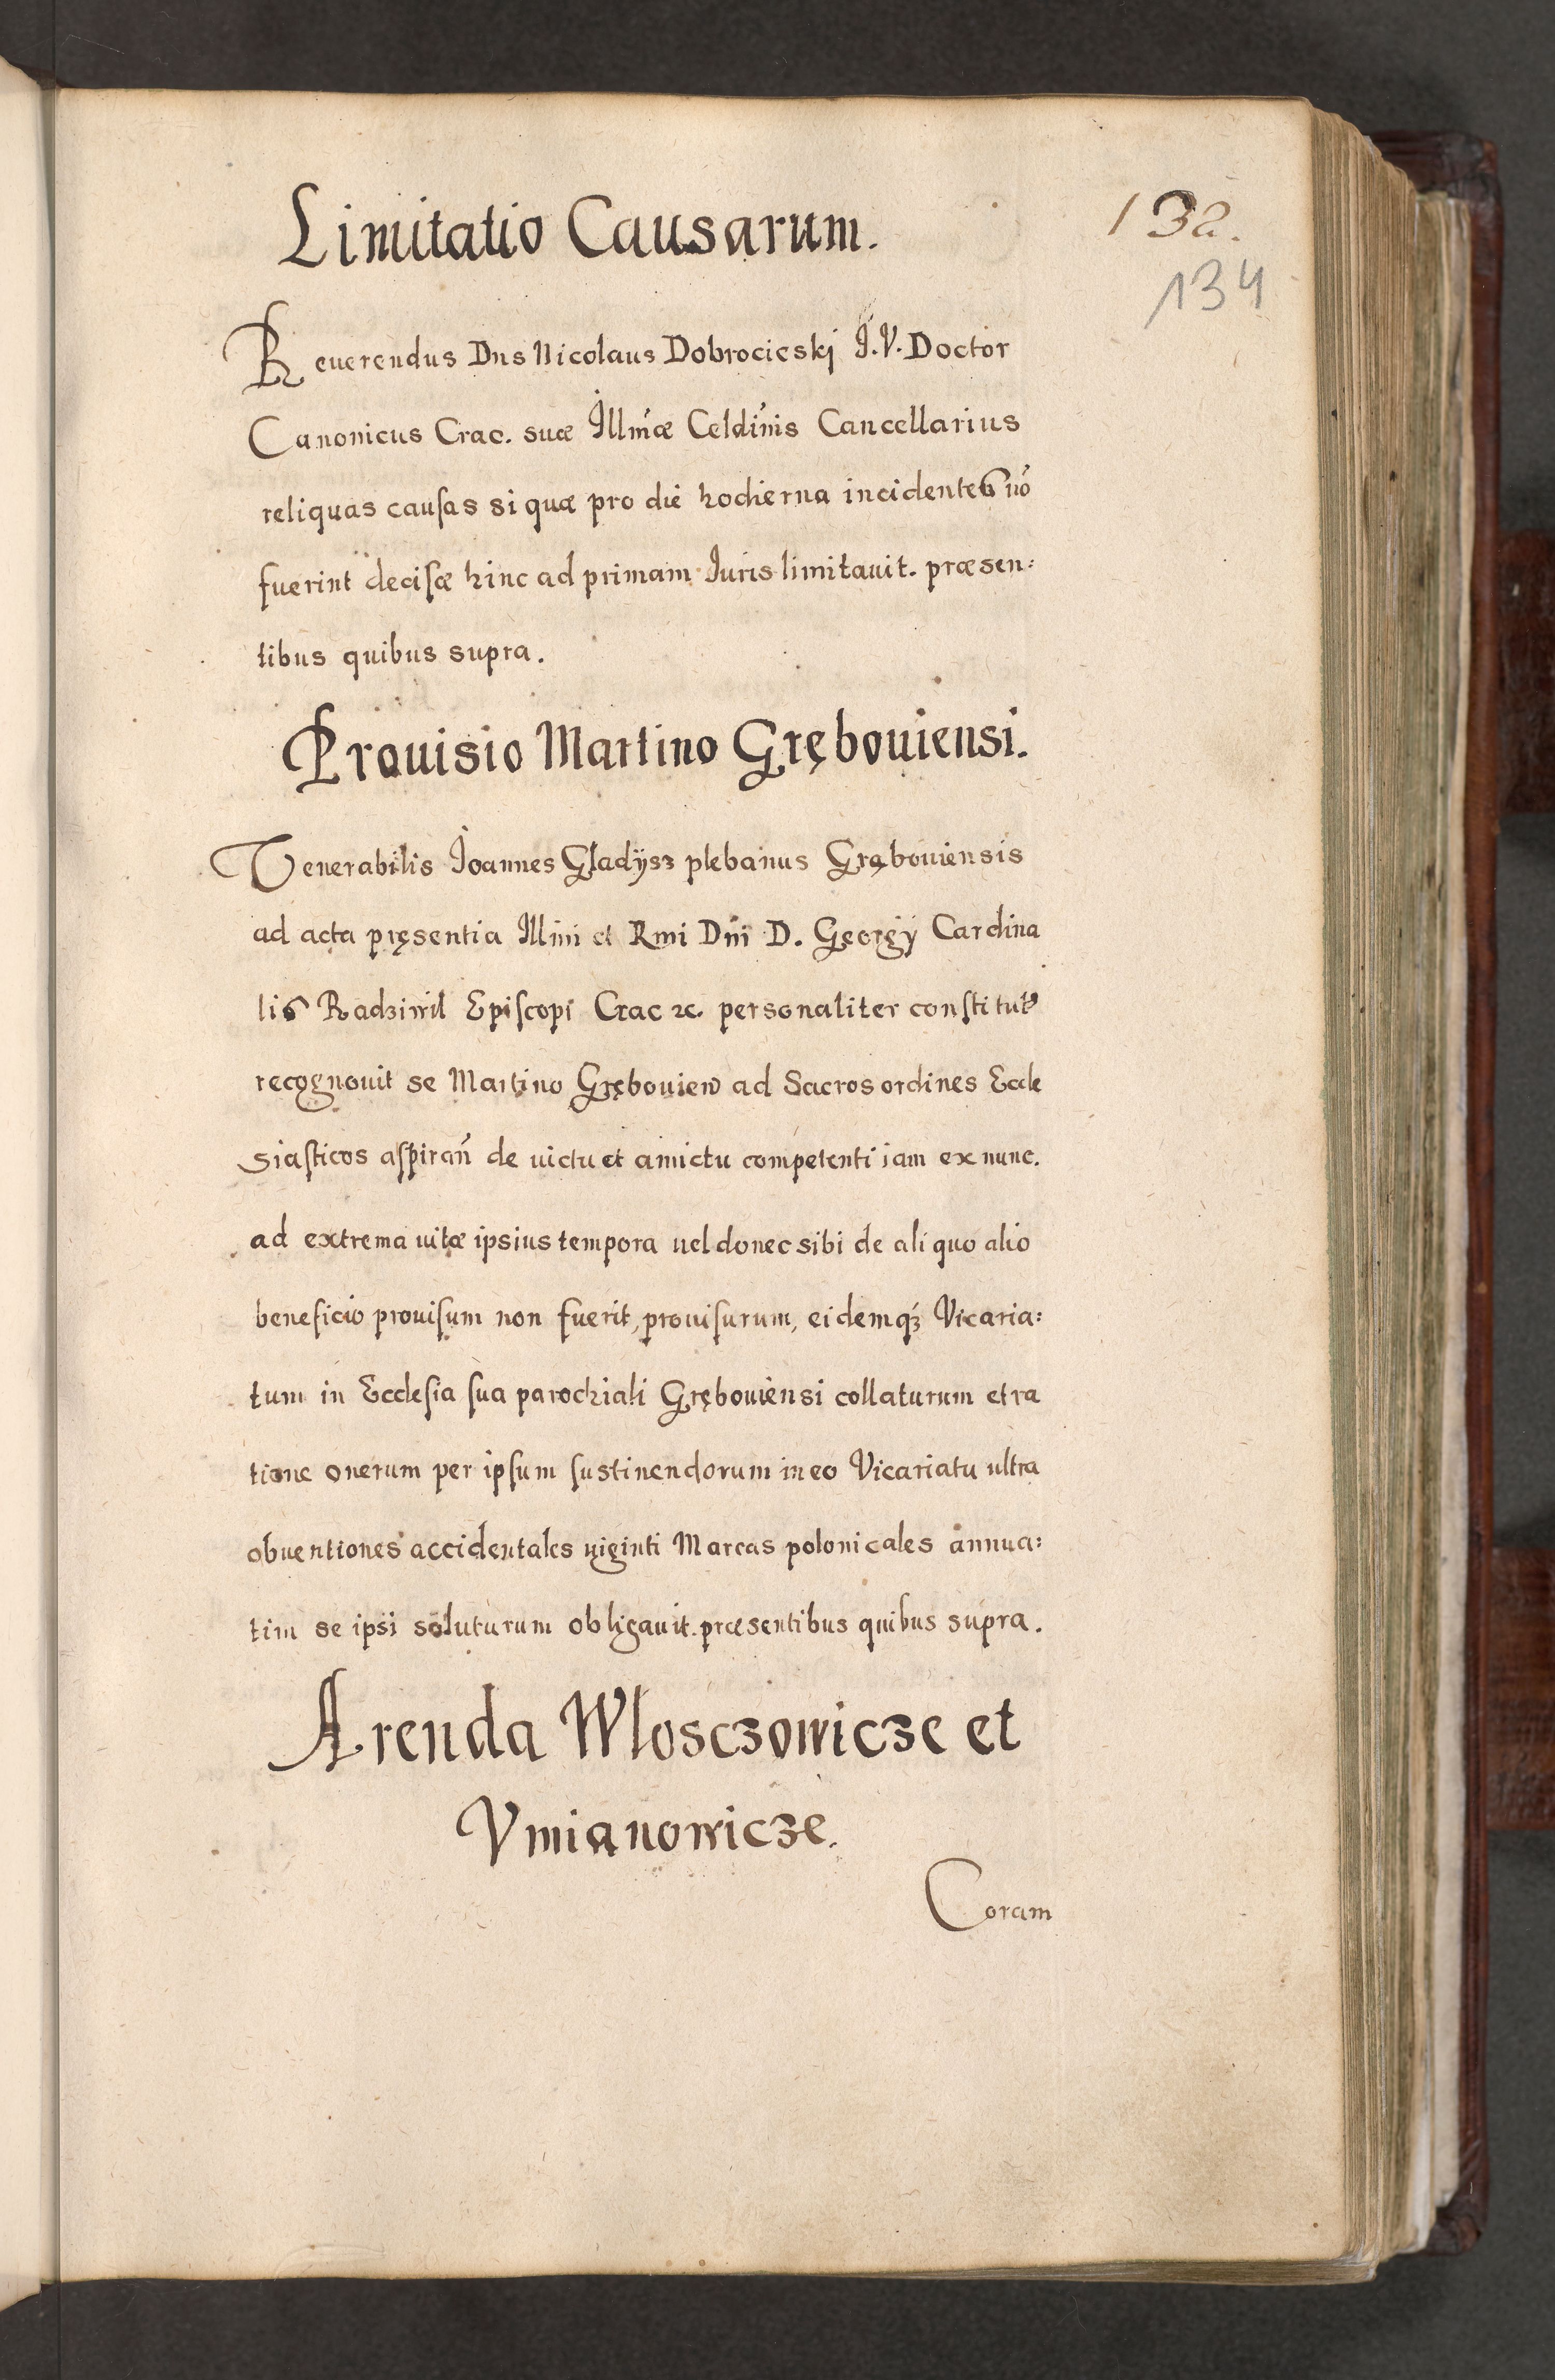 Limitatio Causarum.
132.
134
Reuerendus Dns Nicolaus Dobrocieskj J.V. Doctor
Canonicus Crac. suæ Illmæ Celdinis Cancellarius
reliquas causas si quæ pro die hodierna incidentes nō
fuerint decisæ hinc ad primam Iuris limitauit. præsen:
tibus quibus supra.
Prouisio Martino Grębouiensi.
Venerabilis Ioannes Gladÿsz plebanus Grąbouiensis
ad acta pręsentia Illmi et Rmi Dni D. Georgÿ Cardina
lis Radziwil Episcopi Crac &c. personaliter constitut9
recognouit se Martino Grębouien ad Sacros ordines Eccle
siasticos aspirañ de uictu et amictu competenti iam ex nunc.
ad extrema uitæ ipsius tempora uel donec sibi de aliquo alio
beneficio prouisum non fuerit, prouisurum, eidemq3 Vicaria:
tum in Ecclesia sua parochiali Grębouiensi collaturum et ra
tione onerum per ipsum sustinendorum in eo Vicariatu ultra
obuentiones accidentales uiginti Marcas polonicales annua:
tim se ipsi soluturum obligauit. præsentibus quibus supra.
Arenda Wlosczowicze et
Vmianowicze.
Coram